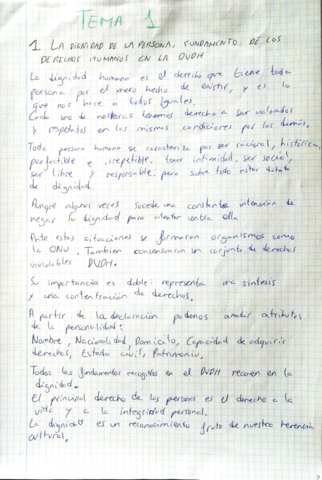 TEMA 1
1 LA DIGNIDAD DE LA PERSONA, FUNDAMENTO DE LOS
DERECHOS HUMANOS EN LA DUDH
La dignidad humana es el derecho que tiene toda
persona por el mero hecho de existir, y es lo
que nos hace a todos iguales.
Cada uno de nosotros tenemos derecho a ser valorados
y respetados en las mismas condiciones por los demás.
Toda persona humana se caracteriza por ser racional, histórica,
perfectible e irrepetible, tener intimidad, ser social,
ser libre y responsable, pero sobre todo estar dotada
de dignidad.
Aunque algunas veces sucede una constante intención de
negar la dignidad para atentar contra ella
Ante estas situaciones se formaron organismos como
la ONU. Tambien consensuaron un conjunto de derechos
inviolables DUDH.
Su importancia es doble: representa una síntesis
y una concentración de derechos.
A partir de la declaración podemos añadir atributos
de la personalidad:
Nombre, Nacionalidad, Domicilo, Capacidad de adquirir
derechos, Estado civil, Patrimonio.
Todos los fundamentos recogidos en el DUDH recaen en la
dignidad.
El principal derecho de las personas es el derecho a la
vida y a la integridad personal.
La dignidad es un reconocimiento fruto de nuestra herencia
cultural.